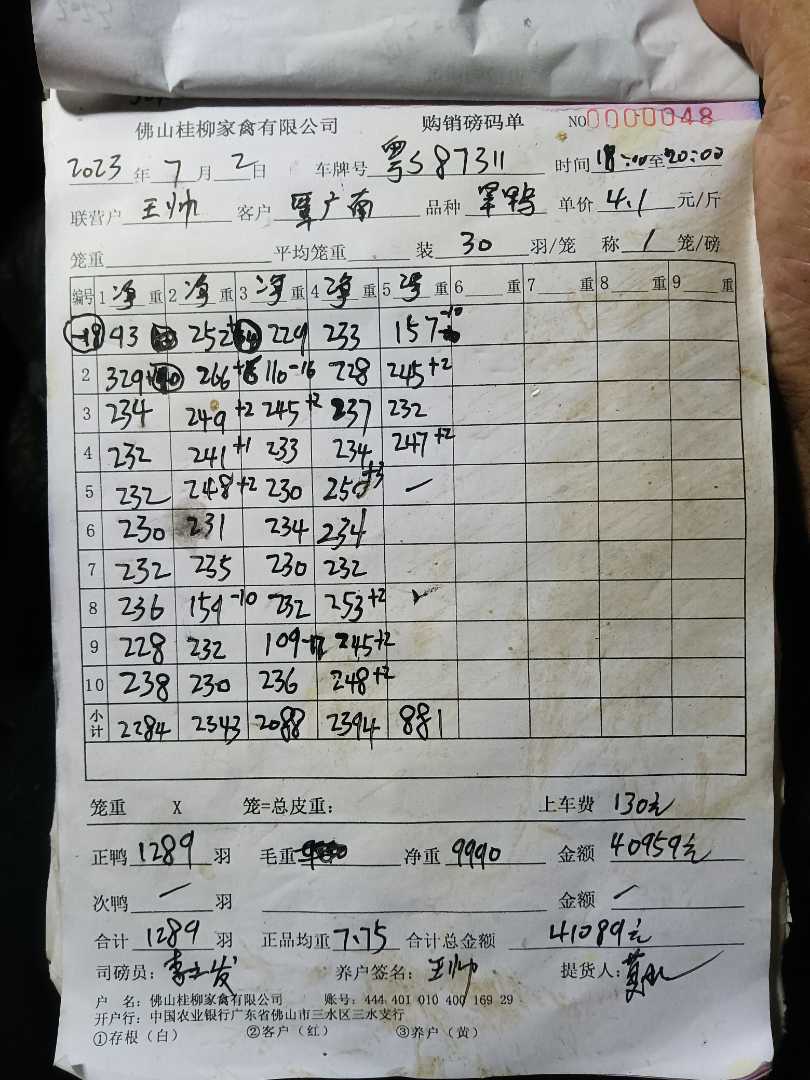 佛山桂柳家禽有限公司 购销磅码单 NO0000048
2023年7月2日 车牌号 粤S87311 时间18:00至20:00
联营户 王帅 客户 广南 品种 鸭 单价 4.1 元/斤
笼重 平均笼重 装 30 羽/笼 称 1 笼/磅
编号 1 净 重 2 净 重 3 净 重 4 净 重 5 净 重 6 重 7 重 8 重 9 重
-18 93 252 229 233 157-10
2 329 266 110-16 228 245+2
3 234 249+2 245+2 237 232
4 232 241+1 233 234 247+2
5 232 248+2 230 250+3 —
6 230 231 234 234
7 232 235 230 232
8 236 159-10 232 253+2
9 228 232 109 245+2
10 238 230 236 248+2
小计 2284 2343 2088 2394 881
笼重 X 笼=总皮重: 上车费 130元
正鸭 1289 羽 毛重 净重 9990 金额 40959元
次鸭 — 羽 金额 —
合计 1289 羽 正品均重 7.75 合计总金额 41089元
司磅员: 养户签名: 王帅 提货人:
户 名: 佛山桂柳家禽有限公司 账号: 444 401 010 400 169 29
开户行: 中国农业银行广东省佛山市三水区三水支行
①存根(白) ②客户(红) ③养户(黄)